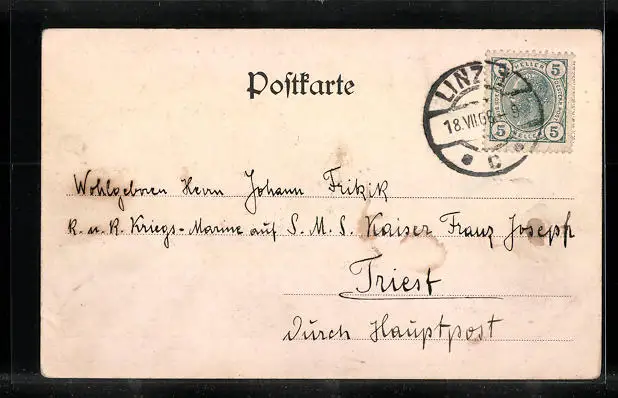 Postkarte
LINZ
18.VII.06
C
HELLER
5 5
5 5
HELLER
Wohlgeboren Herrn Johann
K. u. K. Kriegs-Marine auf S. M. S. Kaiser Franz Joseph
Triest
durch Hauptpost